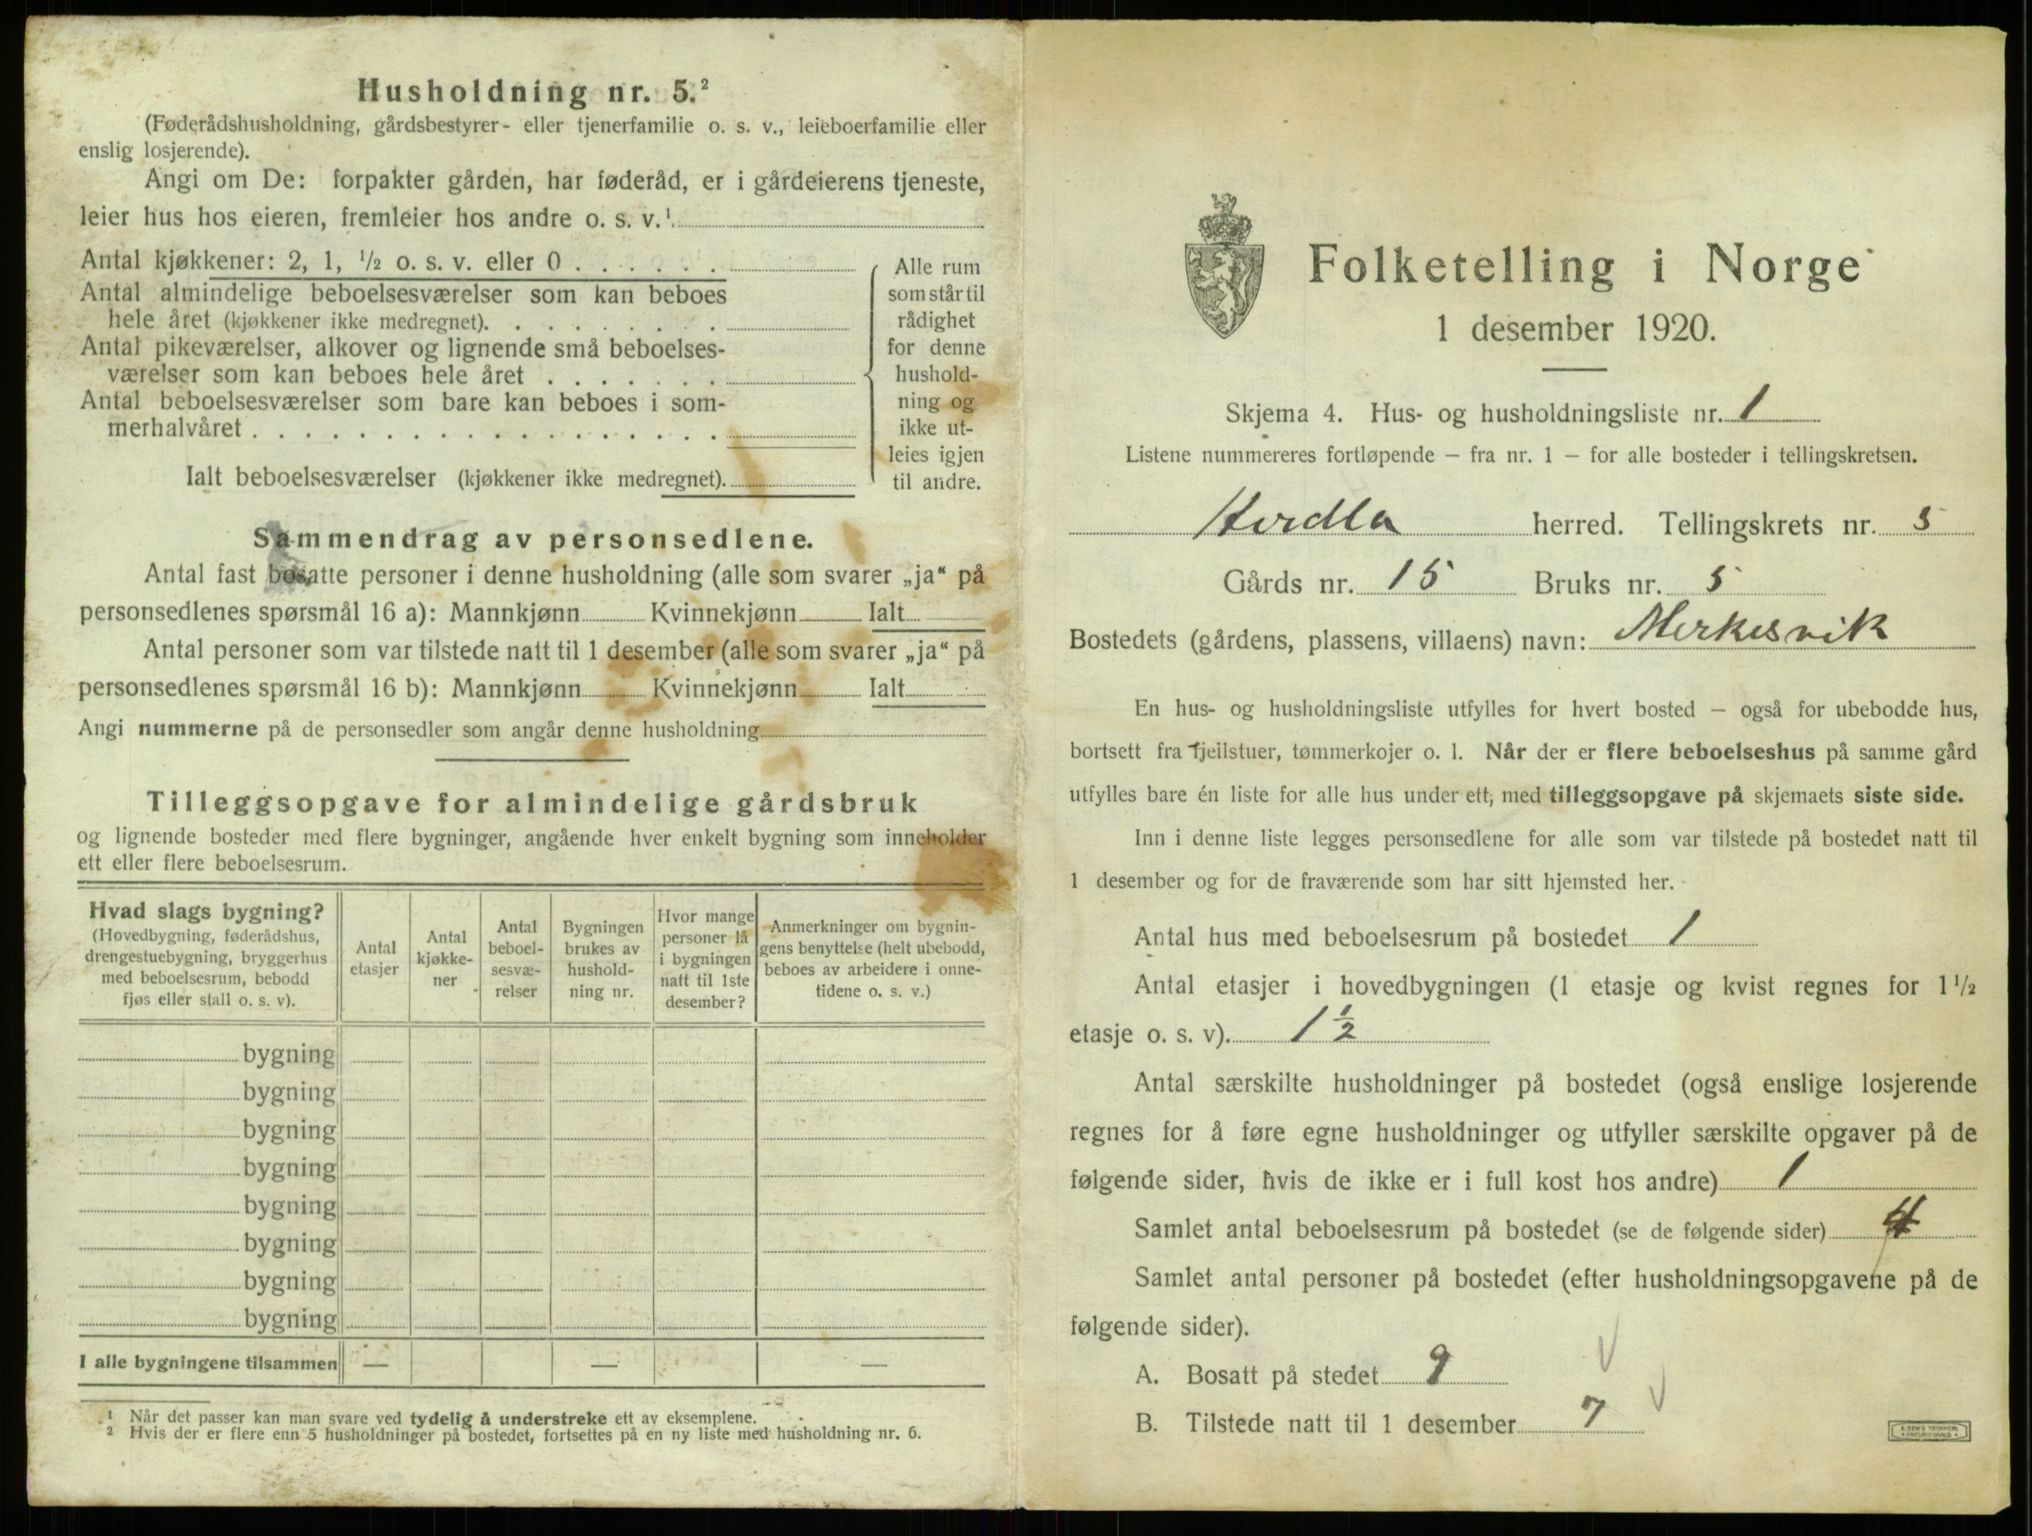 Husholdning nr. 5.²
(Føderådshusholdning, gårdsbestyrer- eller tjenerfamilie o. s. v., leieboerfamilie eller
enslig losjerende).
Angi om De: forpakter gården, har føderåd, er i gårdeierens tjeneste,
leier hus hos eieren, fremleier hos andre o. s. v.¹
Antal kjøkkener: 2, 1, ½ o. s. v. eller 0 . . . . . .
Antal almindelige beboelsesværelser som kan beboes
hele året (kjøkkener ikke medregnet). . . . . . . . .
Antal pikeværelser, alkover og lignende små beboelses-
værelser som kan beboes hele året . . . . . . .
Antal beboelsesværelser som bare kan beboes i som-
merhalvåret . . . . . . . . . . . . . . . . . .
Ialt beboelsesværelser (kjøkkener ikke medregnet).
Alle rum
som står til
rådighet
for denne
hushold-
ning og
ikke ut-
leies igjen
til andre.
Sammendrag av personsedlene.
Antal fast bosatte personer i denne husholdning (alle som svarer „ja“ på
personsedlenes spørsmål 16 a): Mannkjønn Kvinnekjønn Ialt
Antal personer som var tilstede natt til 1 desember (alle som svarer „ja“ på
personsedlenes spørsmål 16 b): Mannkjønn Kvinnekjønn Ialt
Angi nummerne på de personsedler som angår denne husholdning
Tilleggsopgave for almindelige gårdsbruk
og lignende bosteder med flere bygninger, angående hver enkelt bygning som inneholder
ett eller flere beboelsesrum.
Hvad slags bygning?
(Hovedbygning, føderådshus,
drengestuebygning, bryggerhus
med beboelsesrum, bebodd
fjøs eller stall o. s. v).
Antal
etasjer
Antal
kjøkke-
ner
Antal
beboel-
sesvæ-
relser
Bygningen
brukes av
hushold-
ning nr.
Hvor mange
personer lå
i bygningen
natt til 1ste
desember?
Anmerkninger om bygnin-
gens benyttelse (helt ubebodd,
beboes av arbeidere i onne-
tidene o. s. v.)
bygning
bygning
bygning
bygning
bygning
bygning
bygning
bygning
I alle bygningene tilsammen — — —
¹ Når det passer kan man svare ved tydelig å understreke ett av eksemplene.
² Hvis der er flere enn 5 husholdninger på bostedet, fortsettes på en ny liste med husholdning nr. 6.
Folketelling i Norge
1 desember 1920.
Skjema 4. Hus- og husholdningsliste nr. 1
Listene nummereres fortløpende – fra nr. 1 – for alle bosteder i tellingskretsen.
Herdla herred. Tellingskrets nr. 5
Gårds nr. 15 Bruks nr. 5
Bostedets (gårdens, plassens, villaens) navn: Merkesvik
En hus- og husholdningsliste utfylles for hvert bosted – også for ubebodde hus,
bortsett fra fjeilstuer, tømmerkojer o. l. Når der er flere beboelseshus på samme gård
utfylles bare én liste for alle hus under ett, med tilleggsopgave på skjemaets siste side.
Inn i denne liste legges personsedlene for alle som var tilstede på bostedet natt til
1 desember og for de fraværende som har sitt hjemsted her.
Antal hus med beboelsesrum på bostedet 1
Antal etasjer i hovedbygningen (1 etasje og kvist regnes for 1½
etasje o. s. v). 1½
Antal særskilte husholdninger på bostedet (også enslige losjerende
regnes for å føre egne husholdninger og utfyller særskilte opgaver på de
følgende sider, hvis de ikke er i full kost hos andre) 1
Samlet antal beboelsesrum på bostedet (se de følgende sider) 4
Samlet antal personer på bostedet (efter husholdningsopgavene på de
følgende sider).
A. Bosatt på stedet 9
B. Tilstede natt til 1 desember 7